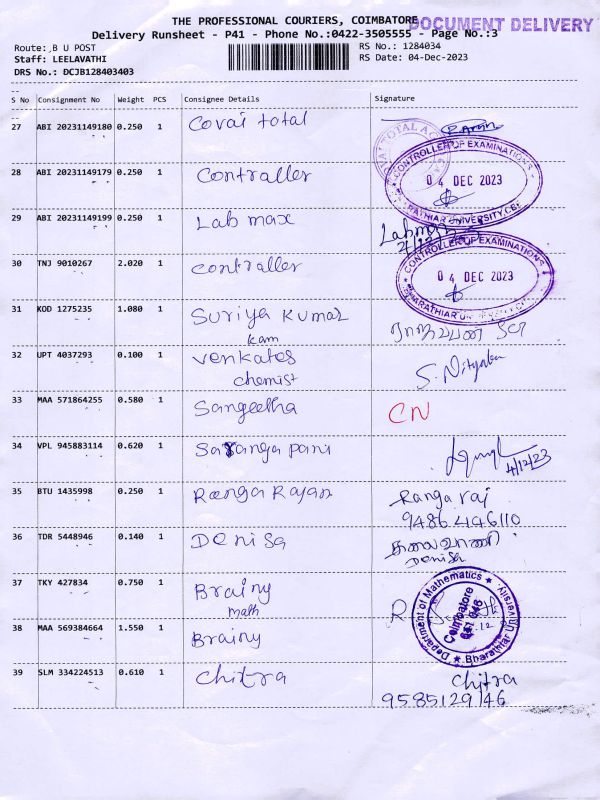 THE PROFESSIONAL COURIERS, COIMBATORE
DOCUMENT DELIVERY
Delivery Runsheet - P41 - Phone No.:0422-3505555 - Page No.:3
Route: ,B U POST
RS No.: 1284034
Staff: LEELAVATHI
RS Date: 04-Dec-2023
DRS No.: DCJB128403403
S No Consignment No Weight PCS Consignee Details Signature
27 ABI 20231149180 0.250 1 Covai total
28 ABI 20231149179 0.250 1 Contraller
CONTROLLER OF EXAMINATIONS
04 DEC 2023
BHARATHIAR UNIVERSITY, CBE
29 ABI 20231149199 0.250 1 Lab max Labmax
30 TNJ 9010267 2.020 1 contraller
CONTROLLER OF EXAMINATIONS
04 DEC 2023
31 KOD 1275235 1.080 1 Suriya Kumar
kam
32 UPT 4037293 0.100 1 Venkates S. Nityaba
chemist
33 MAA 571864255 0.580 1 Sangeetha CN
34 VPL 945883114 0.620 1 Saranga pani
4/12/23
35 BTU 1435998 0.250 1 Ranga Rajan Ranga raj
9486446110
36 TDR 5448946 0.140 1 Denisa கலைவாணி
Denisa
37 TKY 427834 0.750 1 Brainy
math
Department of Mathematics
Coimbatore
641 046
Bharathiar University
38 MAA 569384664 1.550 1 Brainy
39 SLM 334224513 0.610 1 Chitra Chitra
9585129146